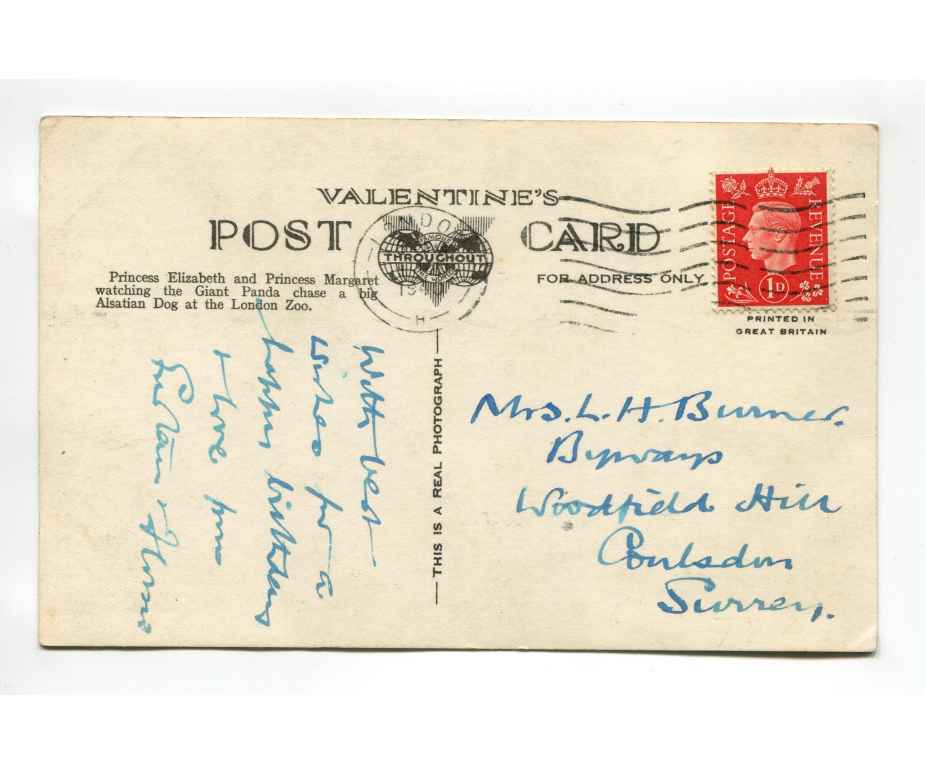 VALENTINE'S
POST CARD
THROUGHOUT
FOR ADDRESS ONLY
Princess Elizabeth and Princess Margaret
watching the Giant Panda chase a big
Alsatian Dog at the London Zoo.
POSTAGE REVENUE
1D
PRINTED IN
GREAT BRITAIN
THIS IS A REAL PHOTOGRAPH
With best
wishes for a
happy birthday
& love from
Mrs. L. H. Burner.
Byways
Woodfield Hill
Coulsdon
Surrey.